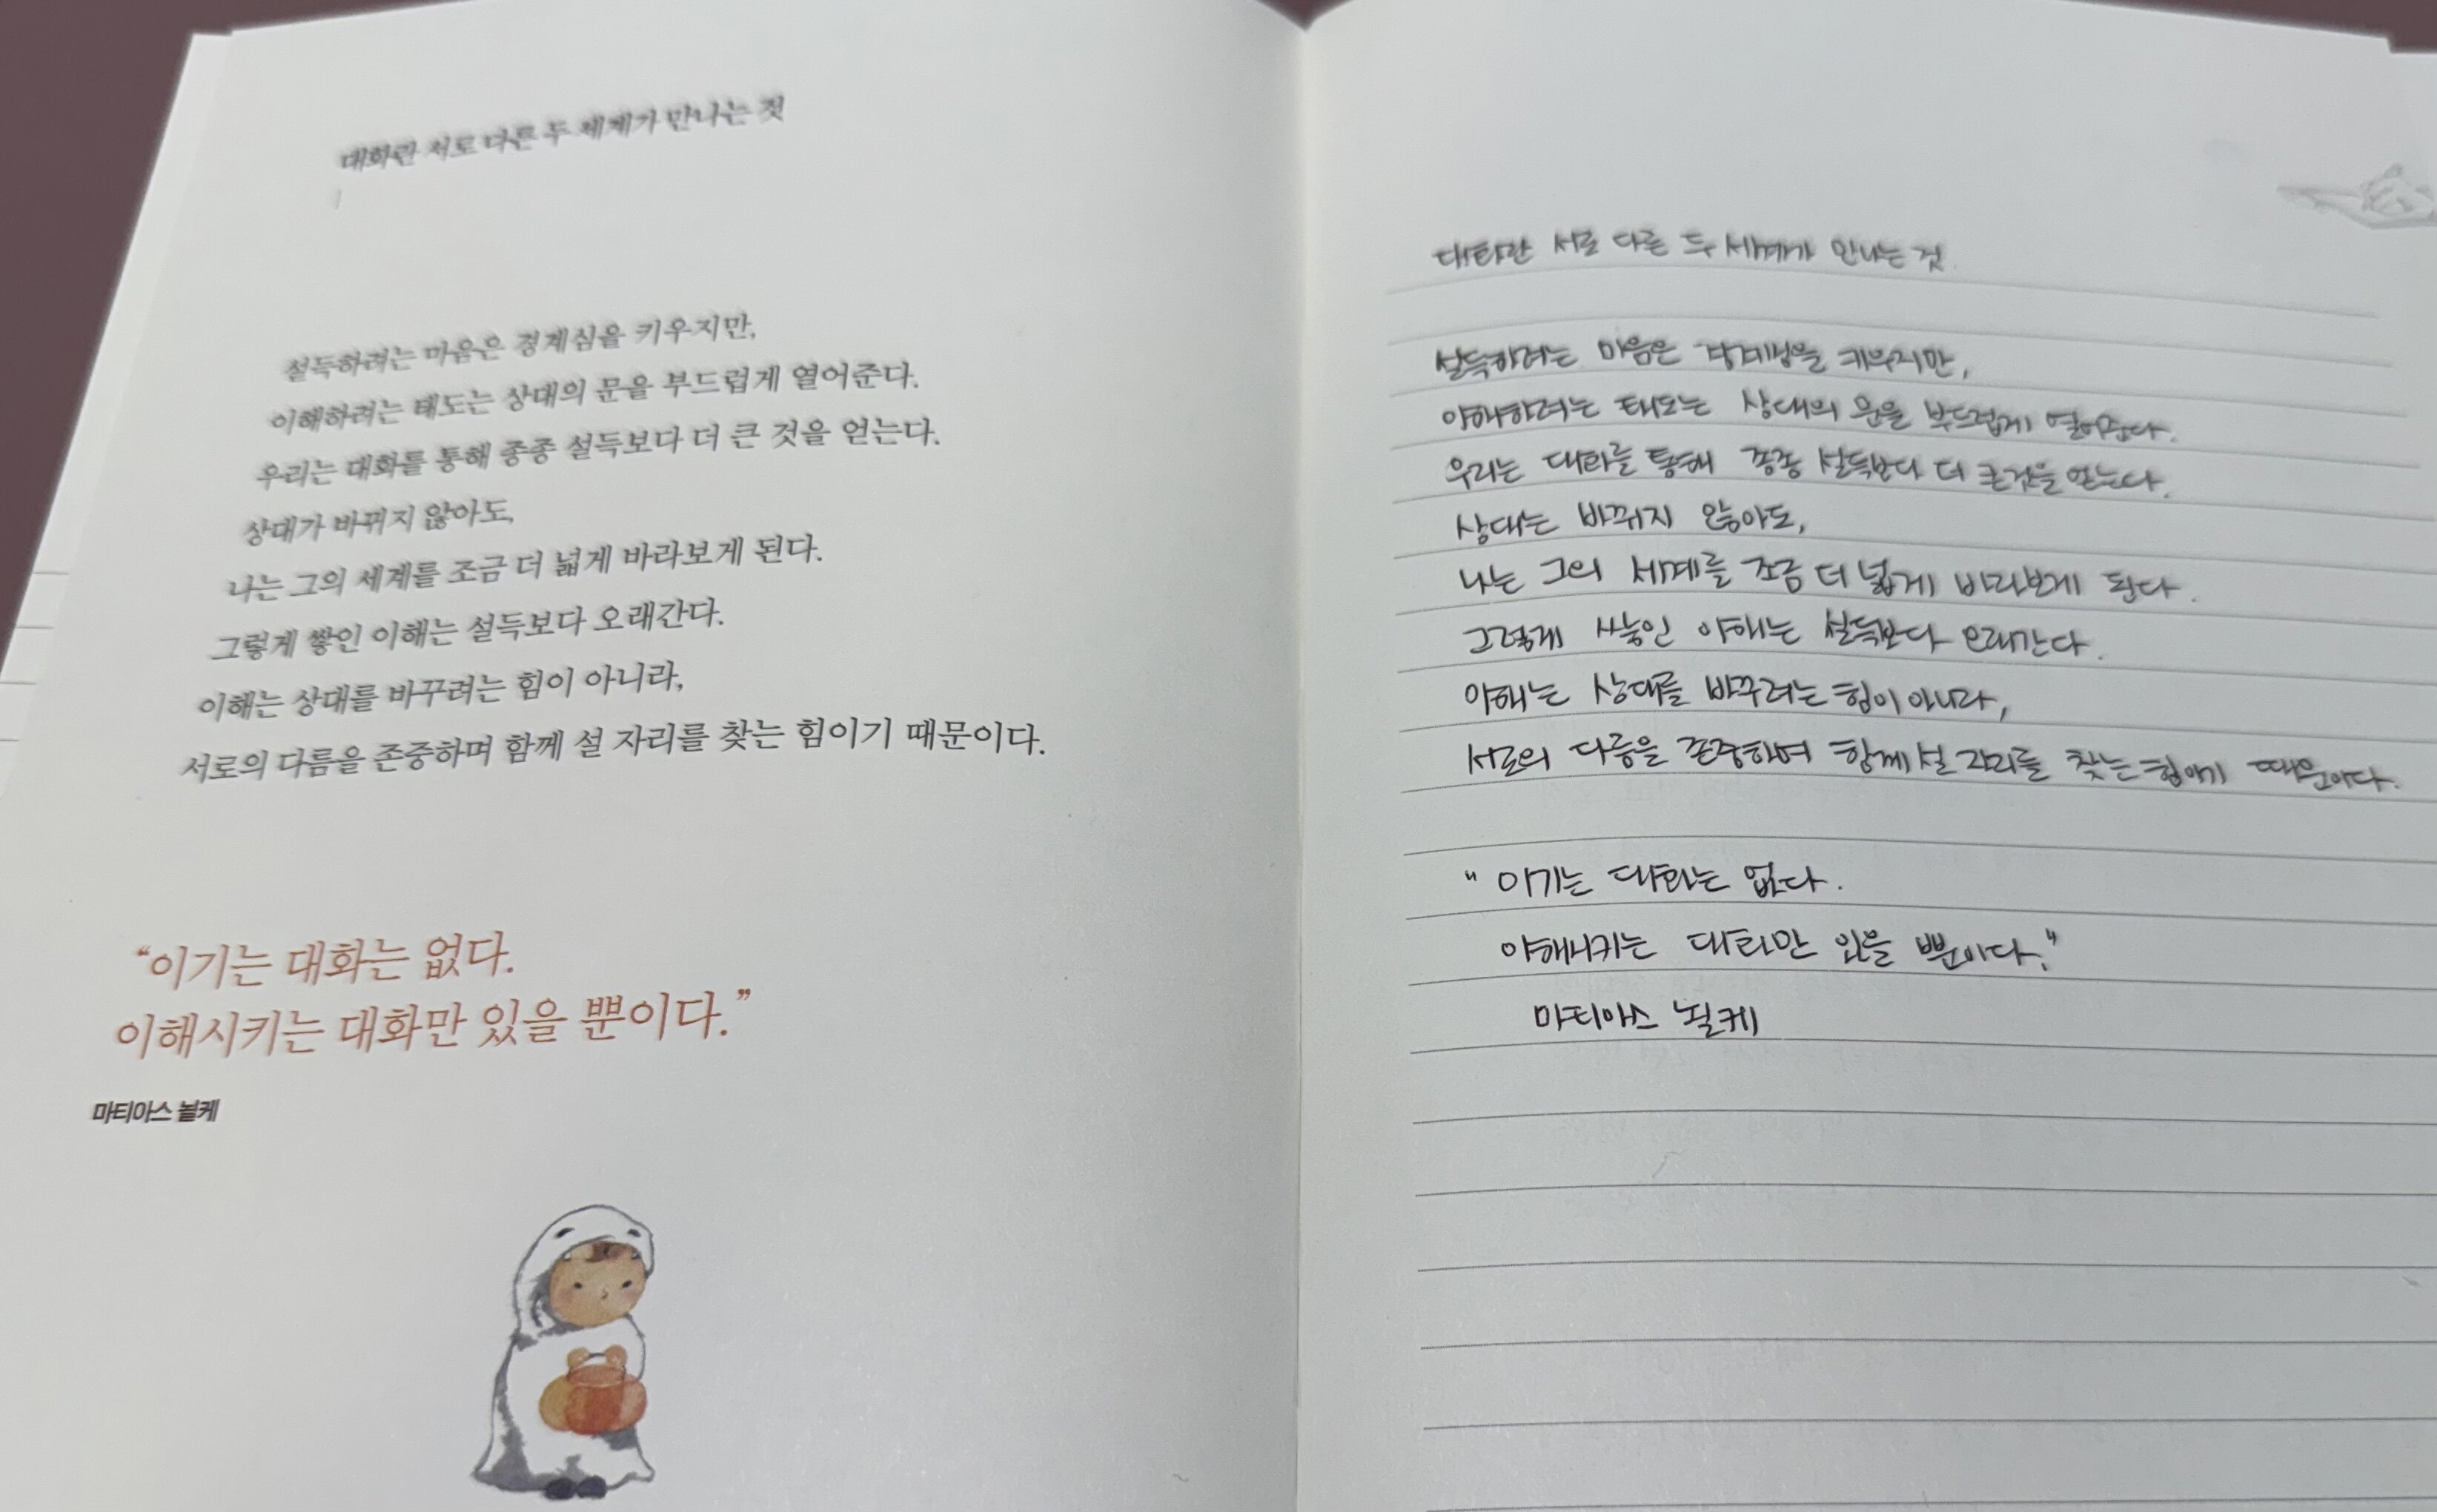 대화란 서로 다른 두 세계가 만나는 것
설득하려는 마음은 경계심을 키우지만,
이해하려는 태도는 상대의 문을 부드럽게 열어준다.
우리는 대화를 통해 종종 설득보다 더 큰 것을 얻는다.
상대가 바뀌지 않아도,
나는 그의 세계를 조금 더 넓게 바라보게 된다.
그렇게 쌓인 이해는 설득보다 오래간다.
이해는 상대를 바꾸려는 힘이 아니라,
서로의 다름을 존중하며 함께 설 자리를 찾는 힘이기 때문이다.
“이기는 대화는 없다.
이해시키는 대화만 있을 뿐이다.”
마티아스 뇔케
대화란 서로 다른 두 세계가 만나는 것.
설득하려는 마음은 키우지만,
이해하려는 태도는 상대의 문을 부드럽게 열어준다.
우리는 대화를 통해 종종 설득보다 더 큰것을 얻는다.
상대는 바뀌지 않아도,
나는 그의 세계를 조금 더 넓게 바라보게 된다.
그렇게 쌓인 이해는 설득보다 오래간다.
이해는 상대를 바꾸려는 힘이 아니라,
서로의 다름을 존중하며 함께 설 자리를 찾는 힘이기 때문이다.
" 이기는 대화는 없다.
이해시키는 대화만 있을 뿐이다."
마티아스 뇔케